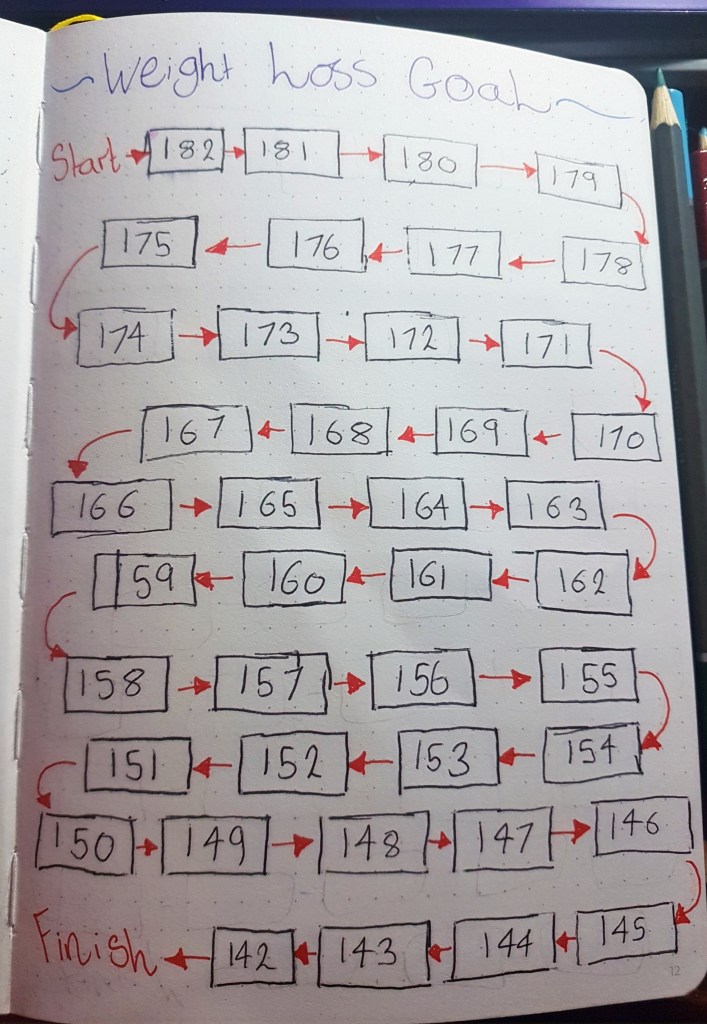 ~Weight Loss Goal~
Start 182 181 180 179
175 176 177 178
174 173 172 171
167 168 169 170
166 165 164 163
159 160 161 162
158 157 156 155
151 152 153 154
150 149 148 147 146
Finish 142 143 144 145
12